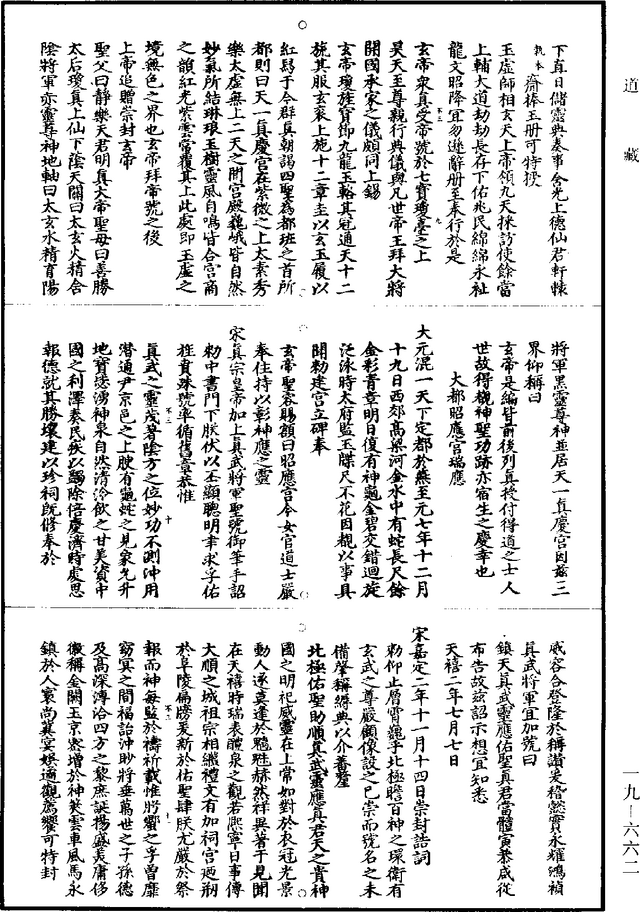 道藏
下直日儲靈典奏事舍先上德仙君軒轅
執本齋捧玉册可特授
玉虛師相玄天上帝領九天採訪使餘當
上輔大道劫劫長存下佑兆民綿綿永祉
龍文昭降宜勿遜辭册至奉行於是
玄帝眾真受帝號於七寶瓊臺之上
昊天至尊親行典儀與凡世帝王拜大將
開國承家之儀頗同上錫
玄帝瓊旌寶節九龍玉輅其冠通天十二
旒其服玄衮上施十二章圭以玄玉履以
紅舄于今群真朝謁四聖為都班之首所
都則曰天一真慶宮在紫微之上太素秀
樂太虛無上二天之間宮殿巍峨皆自然
妙氣所結琳琅玉樹靈風自鳴皆合宮商
之韻紅光紫雲常覆其上此處即玉虛之
境無色之界也玄帝拜帝號之後
上帝追贈崇封玄帝
聖父曰靜樂天君明真大帝聖母曰善勝
太后瓊真上仙下蔭天關曰太玄火精含
陰將軍赤靈尊神地軸曰太玄水精育陽
將軍黑靈尊神並居天一真慶宮因茲三
界仰稱曰
玄帝是編皆前後列真授付得道之士人
世故得觀神聖功跡亦宿生之慶幸也
大都昭應宮瑞應
大元混一天下定都於燕至元七年十二月
十九日西郊高梁河金水中有蛇長尺餘
金彩青章明日復有神龜金碧交錯迴旋
泛泳時太府監玉牒尺不花因覩以事具
聞勑建宮立碑奉
玄帝聖容賜額曰昭應宮令女官道士嚴
奉住持以彰神應之靈
宋真宗皇帝加上真武將軍聖號御筆手詔
勑中書門下朕伏以丕顯聰明聿求孚佑
在賁珠號率循舊章恭惟
真武之靈茂著陰方之位妙功不測沖用
潛通尹京邑之上腴有龜蛇之見象允升
地寶遂湧神泉自然清泠飲之甘美資中
國之利澤泰民疾以蠲除倍慶濟時處思
報德就其勝壤建以珍祠既修奉於
威容合登隆於稱讚爰稽懿實永耀鴻禎
真武將軍宜加號曰
鎮天真武靈應佑聖真君當體寅恭咸從
布告故茲詔示想宜知悉
天禧二年七月七日
宋嘉定二年十一月十四日崇封誥詞
勑仰止層霄巍乎北極瞻百神之環衛有
玄武之尊嚴顧像設之已崇而號名之未
備肇稱縟典以介蕃釐
北極佑聖助順真武靈應真君天之貴神
國之明祀威靈在上常如對於衣冠光景
動人遂莫逢於魑魅赫然祥異著于見聞
在天禧時瑞表醴泉之觀若熙寧日事傳
大順之城祖宗相繼禮文有加祠宮迺剏
於阜陵扁牓爰新於佑聖肆朕尤嚴於祭
報而神每監於禱祈載惟肸蠁之孚曾靡
窈冥之間福詒沖眇將垂萬世之子孫德
及高深溥洽四方之黎庶誕揚盛美庸侈
徽稱金闕玉京密增於神筴雲車風馬永
鎮於人寰尚冀宴娛適觀薦饗可特封
一九-六六二